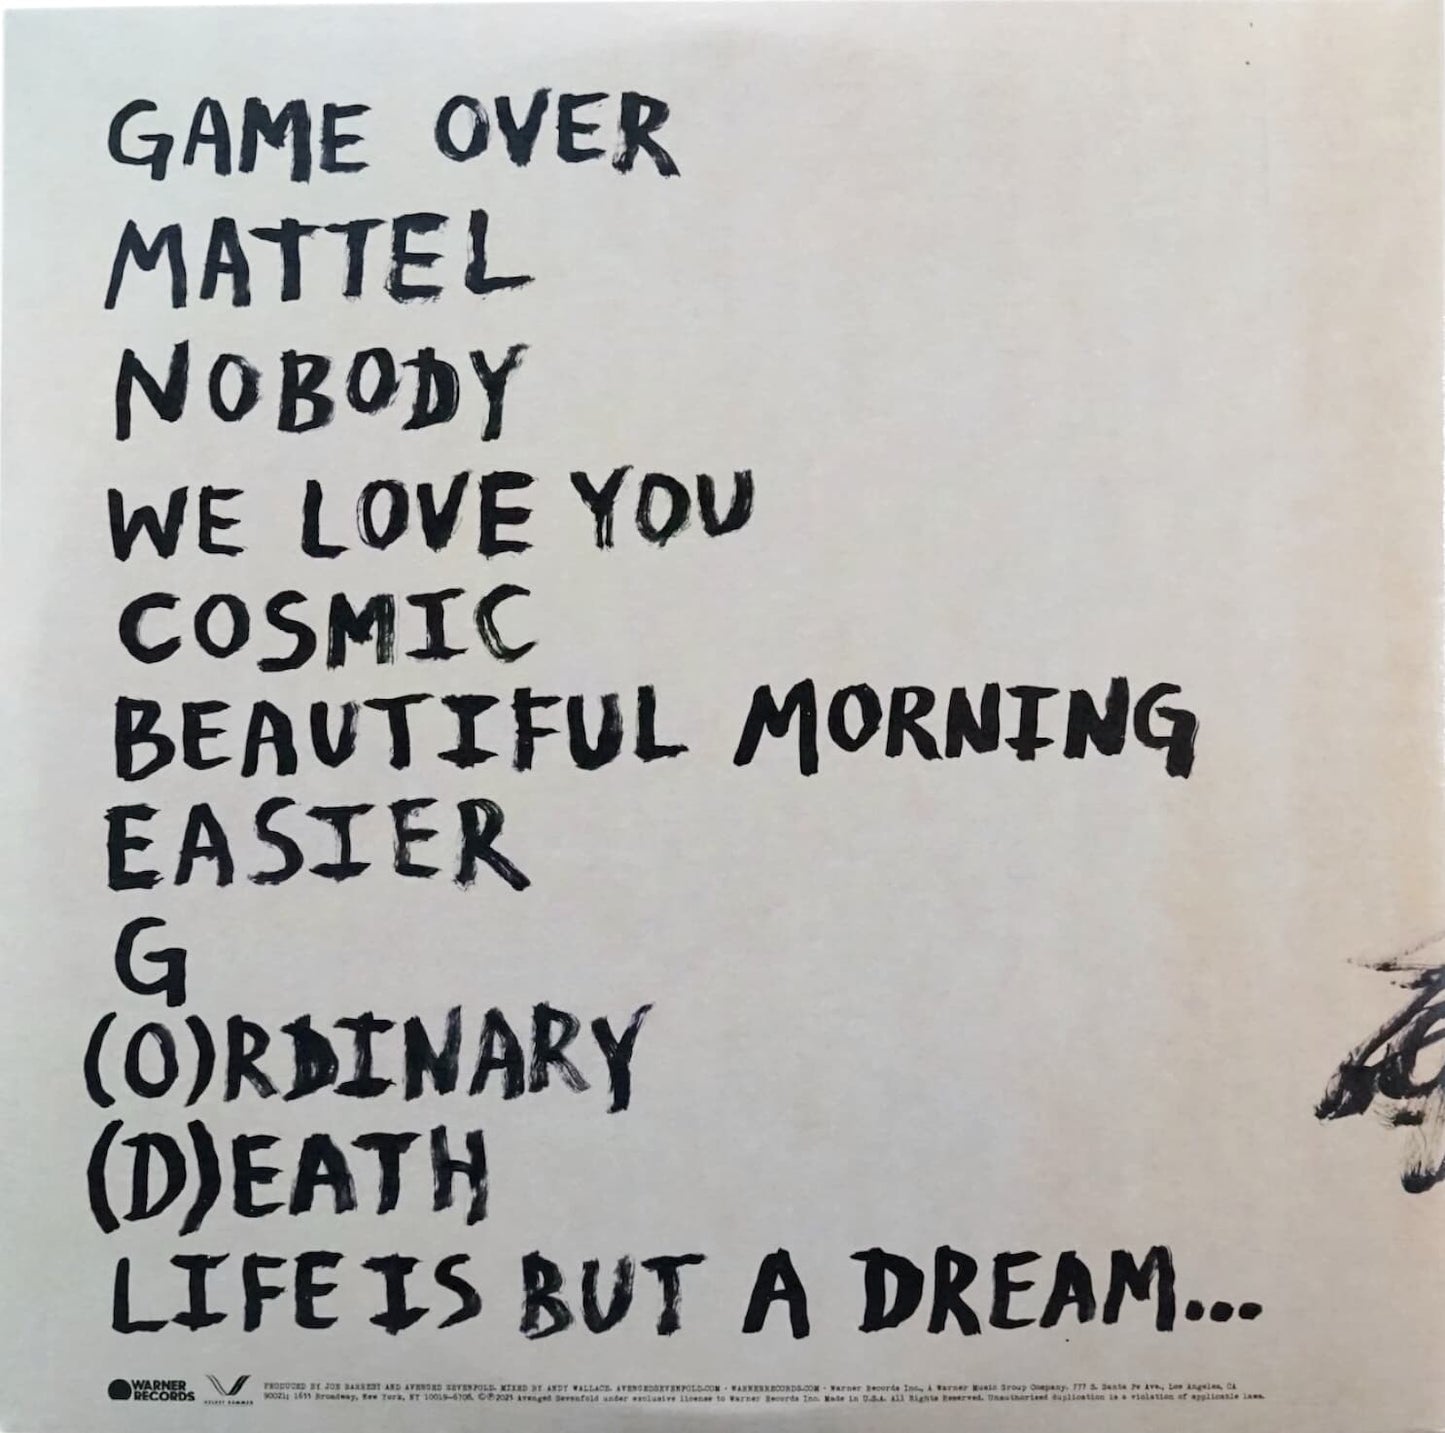 GAME OVER
MATTEL
NOBODY
WE LOVE YOU
COSMIC
BEAUTIFUL MORNING
EASIER
G
(O)RDINARY
(D)EATH
LIFE IS BUT A DREAM...
WARNER
RECORDS
PRODUCED BY JOE BARRESI AND AVENGED SEVENFOLD. MIXED BY ANDY WALLACE. AVENGEDSEVENFOLD.COM · WARNERRECORDS.COM · Warner Records Inc., A Warner Music Group Company. 777 S. Santa Fe Ave., Los Angeles, CA
90021; 1633 Broadway, New York, NY 10019-6708. ©℗2023 Avenged Sevenfold under exclusive license to Warner Records Inc. Made in U.S.A. All Rights Reserved. Unauthorized duplication is a violation of applicable laws.